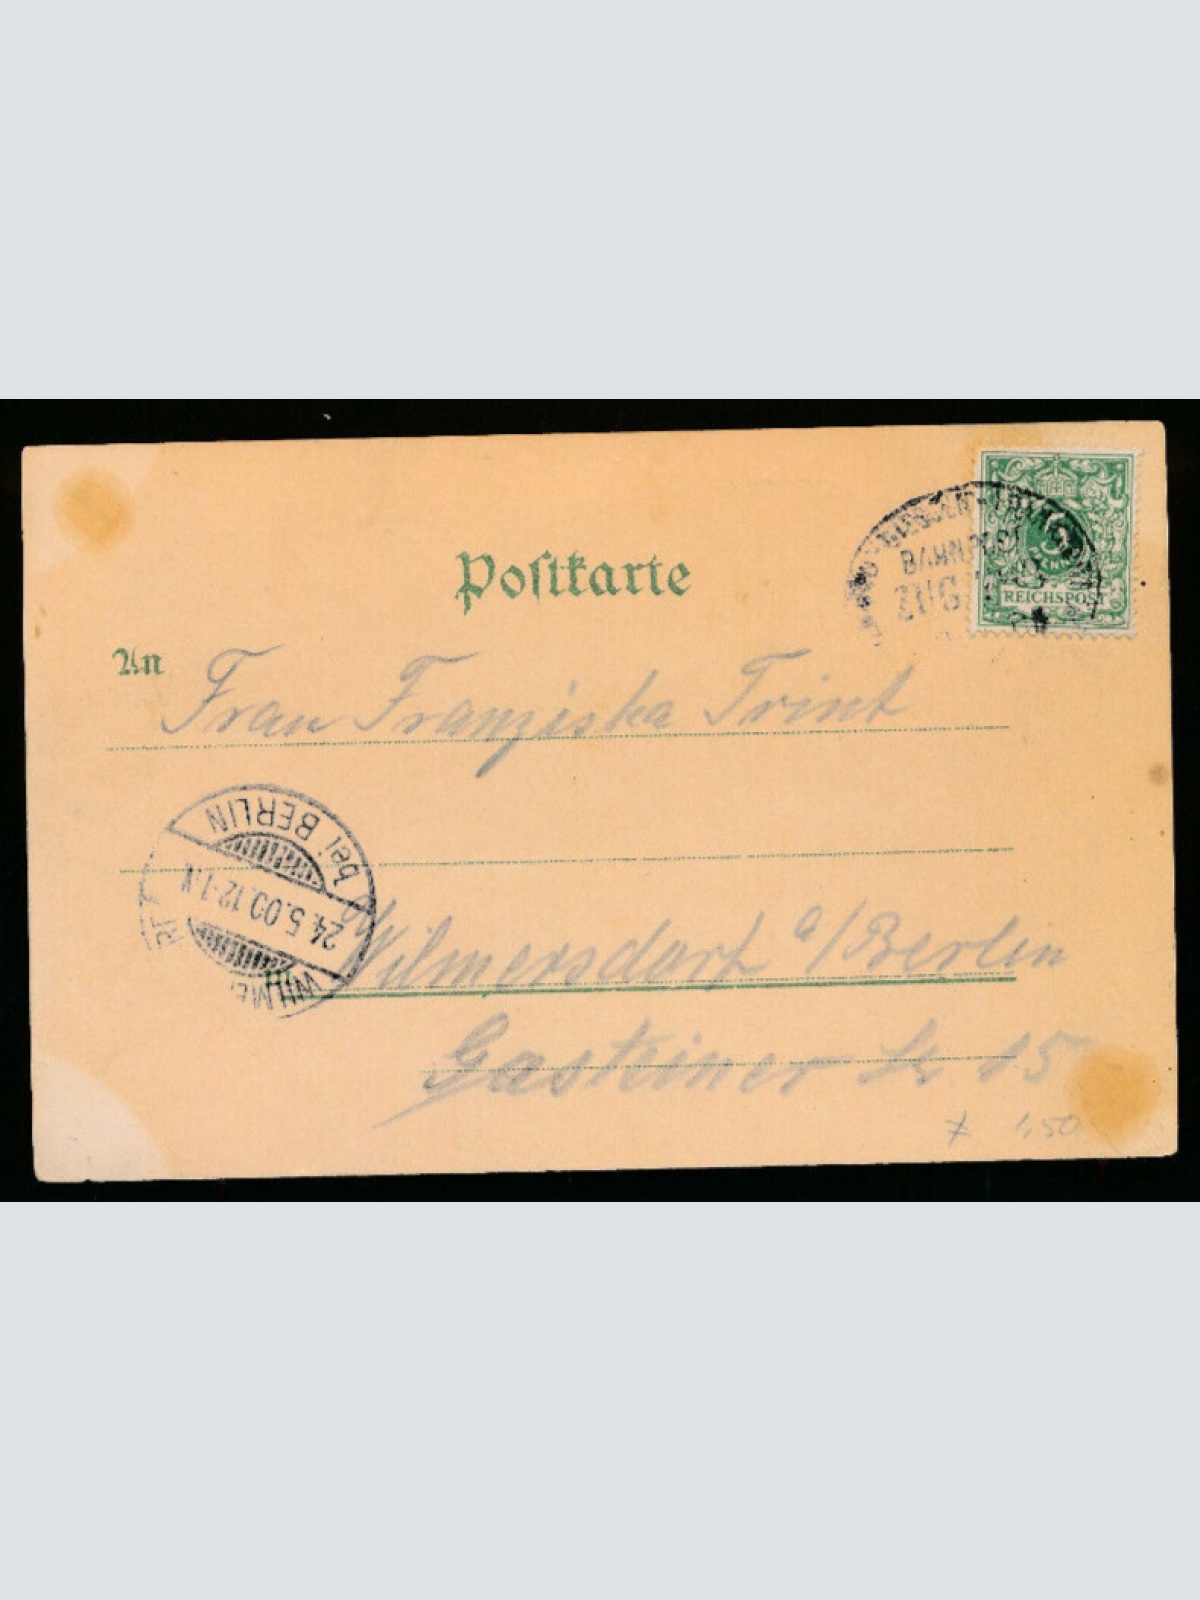 Postkarte
5
PFENNIG
REICHSPOST
GIESSEN
BAHNPOST
ZUG
An
Frau Franziska Trint
bei BERLIN
24.5.00.12-1.N
WILME
In
Wilmersdorf a/Berlin
Gasteiner Str. 15
1,50